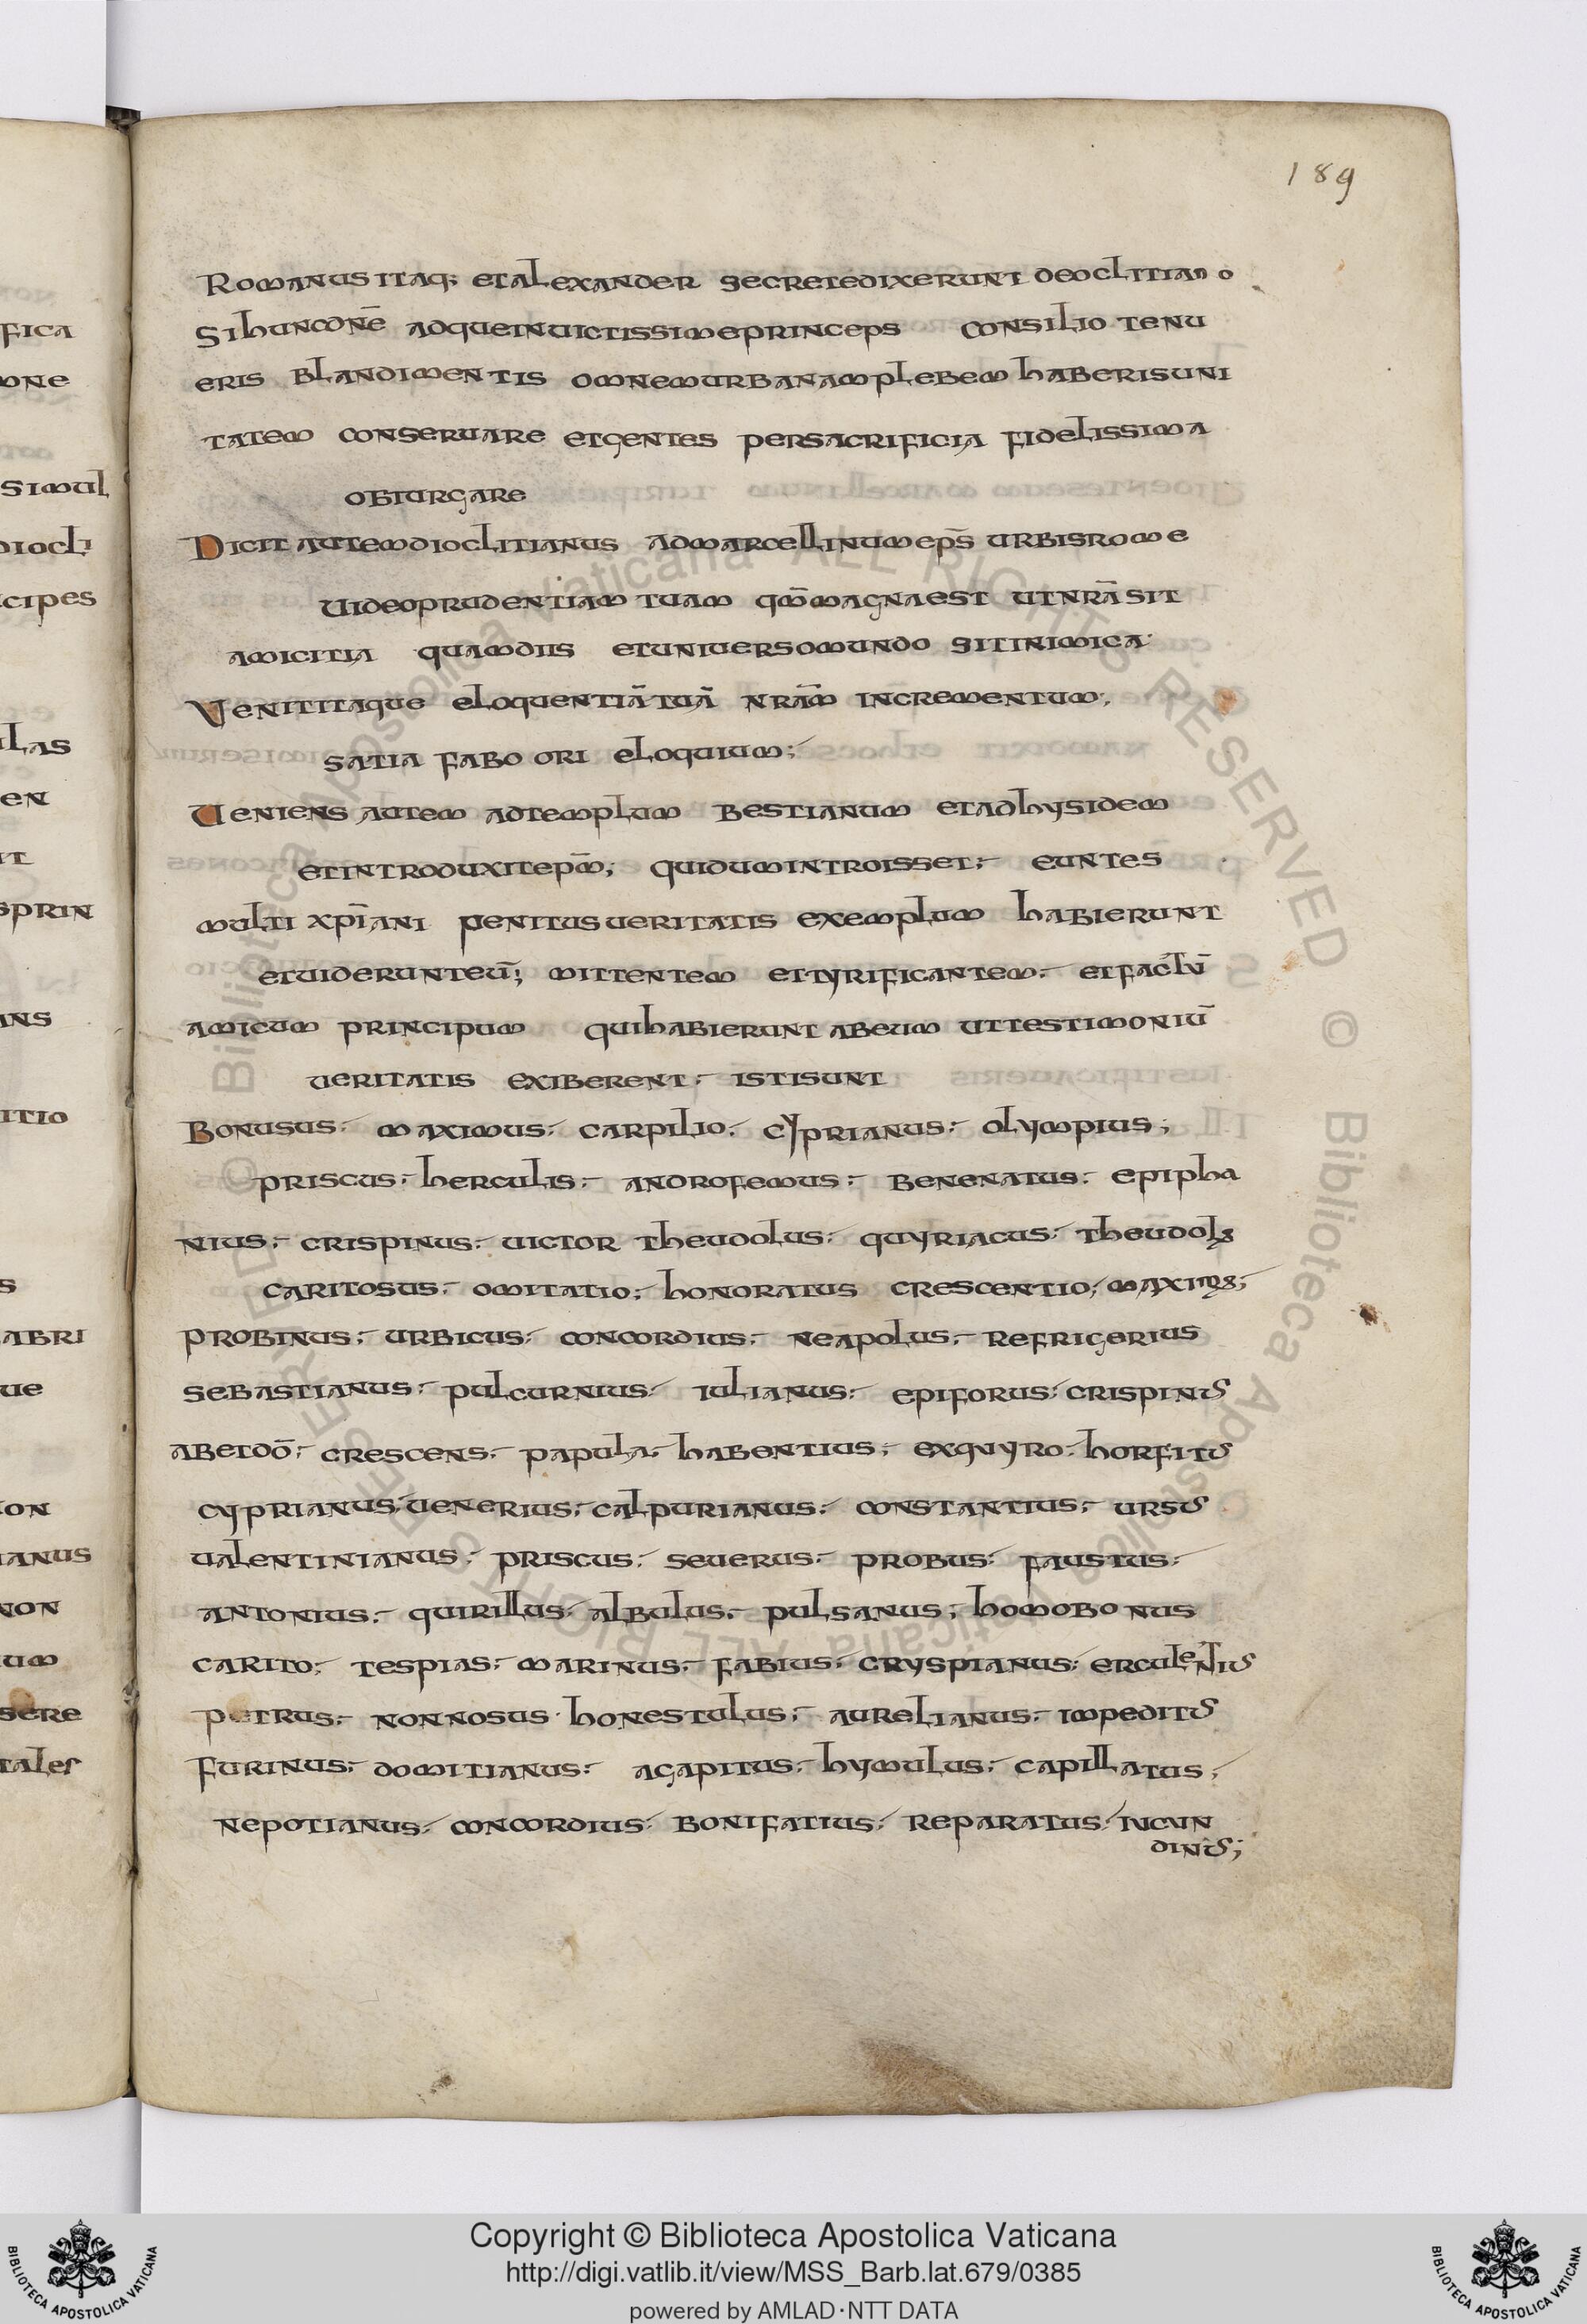 189
Romanus itaq; et alexander secrete dixerunt deoclitiano
Si hunc dñe adque inuictissime princeps consilio tenu
eris blandimentis omnem urbanam plebem haberis uni
tatem conseruare et gentes per sacrificia fidelissima
obiurgare
Dicit autem dioclitianus ad marcellinum eps̄ urbis rome
Uideo prudentiam tuam qm̄ magna est ut nr̄a sit
amicitia quam diis et uniuerso mundo sit inimica·
Venit itaque eloquentiā tuā nr̄am incrementum;
satia fabo ori eloquium;
Ueniens autem ad templum bestianum et adhysidem
et introduxit epm̄; qui dum introisset; euntes
multi xp̄iani penitus ueritatis exemplum habierunt
et uiderunt eū; mittentem et tyrificantem; et factū
amicum principum qui habierunt ab eum ut testimoniū
ueritatis exiberent; isti sunt
Bonusus; maximus; carpilio; cyprianus; olympius;
priscus; herculis; androfemus; benenatus; epipha
nius; crispinus; uictor theudolus; quyriacus; theudolus
caritosus; omitatio; honoratus crescentio; maximus;
probinus; urbicus; concordius; neapolus; refrigerius
sebastianus; pulcurnius; iulianus; epiforus; crispinus
abetdō; crescens; papula; habentius; exquyro; horfitus
cyprianus; uenerius; calpurianus; constantius; ursus
ualentinianus; priscus; seuerus; probus; faustus;
antonius; quirillus; albulus; pulsanus; homobonus
carito; tespias; marinus; fabius; cryspianus; erculentius
petrus; nonnosus· honestulus; aurelianus; impeditus
furinus; domitianus; agapitus; hymulus; capillatus;
nepotianus; concordius; bonifatius; reparatus; iucun
dinus;
fica
mne
simul
diocli
cipes
ulas
en
it
sprin
ans
itio
s
abri
ue
ion
ianus
non
um
sere
tales
© Biblioteca Apostolica Vaticana ALL RIGHTS RESERVED © Biblioteca Apostolica Vaticana ALL RIGHTS RESERVED
Copyright © Biblioteca Apostolica Vaticana
http://digi.vatlib.it/view/MSS_Barb.lat.679/0385
powered by AMLAD·NTT DATA
BIBLIOTECA APOSTOLICA VATICANA
BIBLIOTECA APOSTOLICA VATICANA